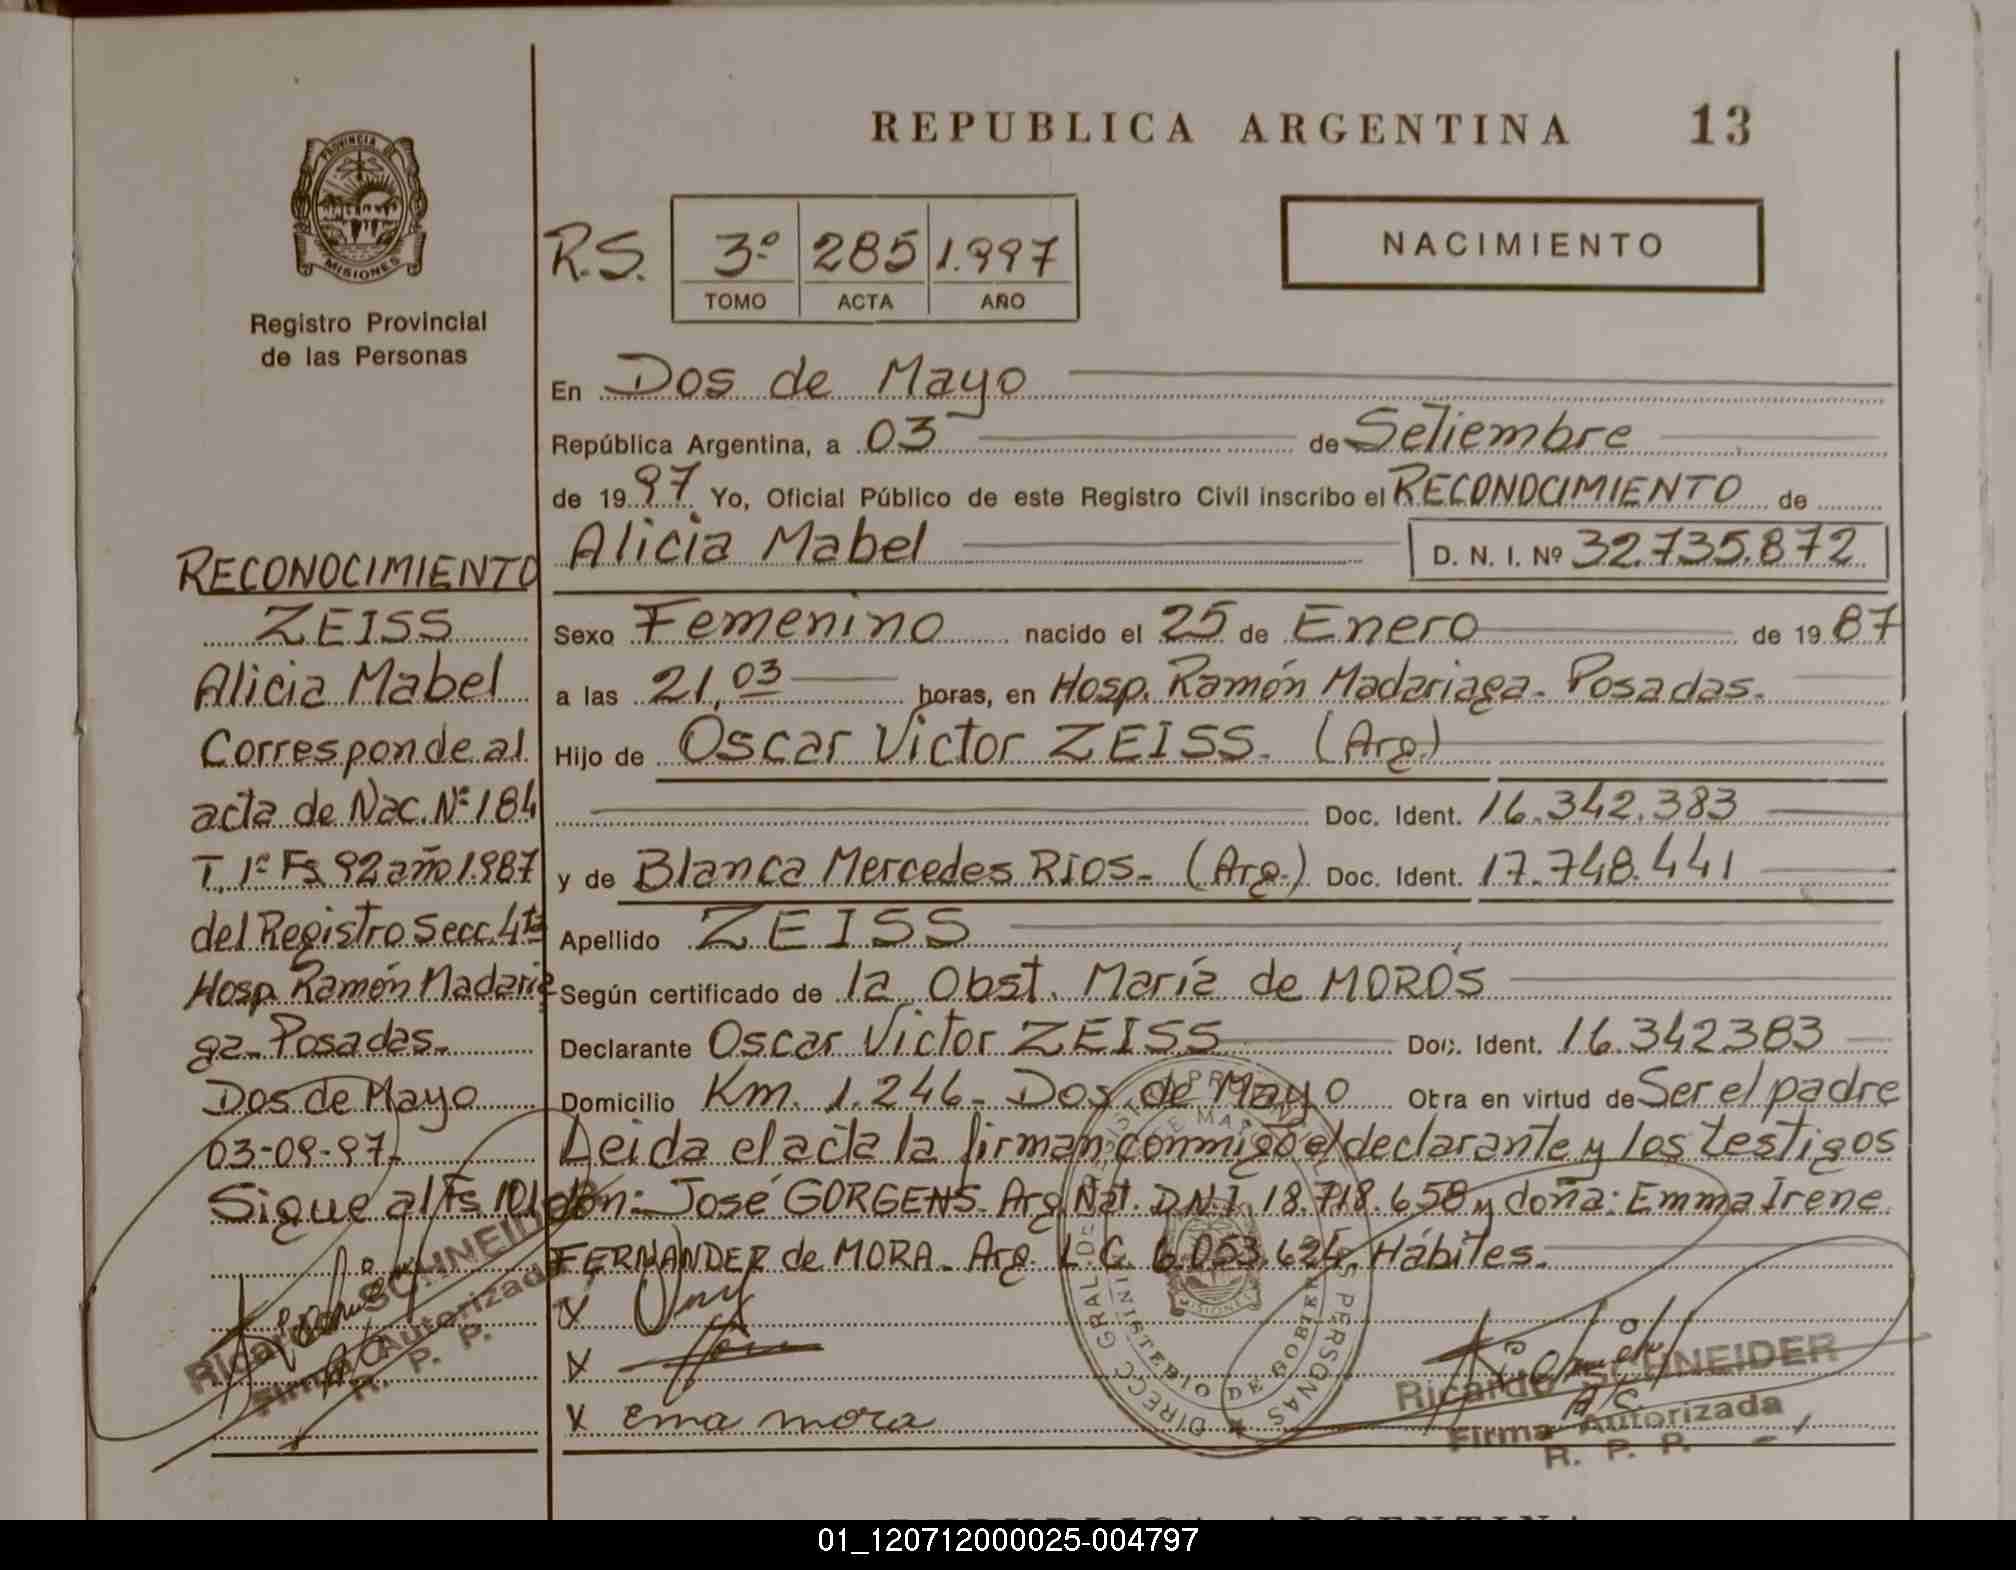 REPUBLICA ARGENTINA 13
PROVINCIA DE
MISIONES
Registro Provincial
de las Personas
R.S. 3º 285 1.997
TOMO ACTA AÑO
NACIMIENTO
En Dos de Mayo
República Argentina, a 03 de Setiembre
de 1997 Yo, Oficial Público de este Registro Civil inscribo el RECONOCIMIENTO de
Alicia Mabel D. N. I. Nº 32.735.872
Sexo Femenino nacido el 25 de Enero de 1987
a las 21,03 horas, en Hosp. Ramón Madariaga. Posadas.
Hijo de Oscar Victor ZEISS. (Arg.)
Doc. Ident. 16.342.383
y de Blanca Mercedes RIOS.- (Arg.) Doc. Ident. 17.748.441
Apellido ZEISS
Según certificado de la Obst. María de MOROS
Declarante Oscar Victor ZEISS Doc. Ident. 16.342383
Domicilio Km. 1.246- Dos de Mayo Otra en virtud de Ser el padre
Leida el acta la firman conmigo el declarante y los testigos
don: José GORGENS. Arg. Nat. D.N.I. 18.718.658 y doña: Emma Irene
FERNANDEZ de MORA. Arg. L.C. 6.053.624. Hábiles.
x
x
x Ema mora
Ricardo SCHNEIDER
Firma Autorizada
R. P. P.
DIRECC GRAL DE PERSONAS
MINISTERIO DE GOBIERNO
MISIONES
RECONOCIMIENTO
ZEISS
Alicia Mabel
Corresponde al
acta de Nac. Nº 184
T. 1º Fs 92 año 1.987
del Registro Secc. 4ta
Hosp. Ramón Madaria
ga- Posadas.
Dos de Mayo
03-09-97.
Sigue al Fs 101
Ricardo SCHNEIDER
Firma Autorizada
R. P. P.
REPUBLICA ARGENTINA
01_120712000025-004797